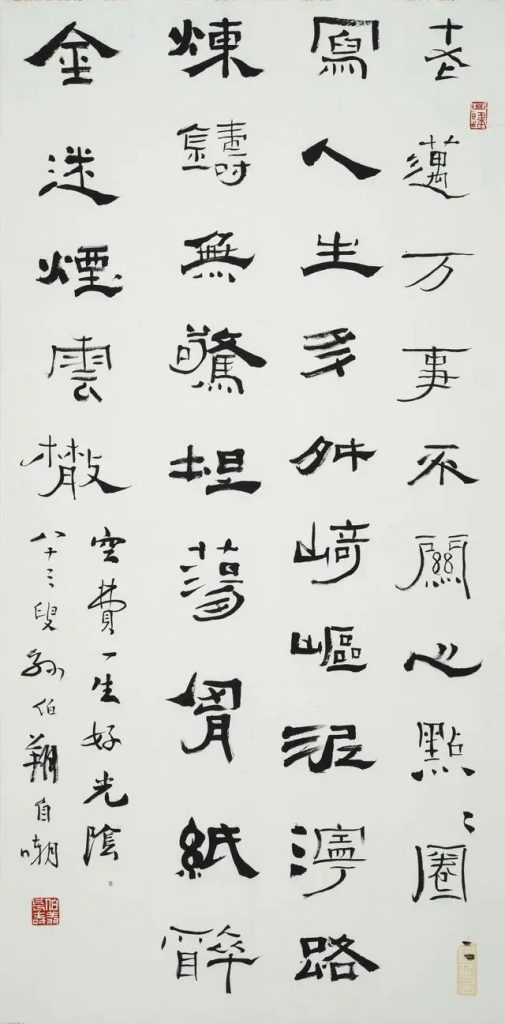 老邁万事不關心點〻圈〻
寫人生多舛崎嶇泥濘路
煉鑄無驚坦蕩胷紙醉
金迷煙雲㪔
空費一生好光陰
八十三叟孫伯翔自嘲